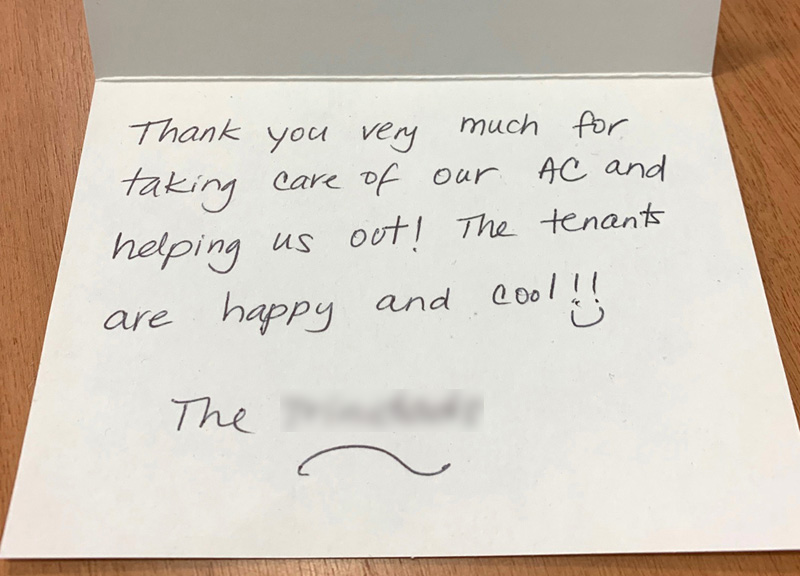 Thank you very much for
taking care of our AC and
helping us out! The tenants
are happy and cool!!
The